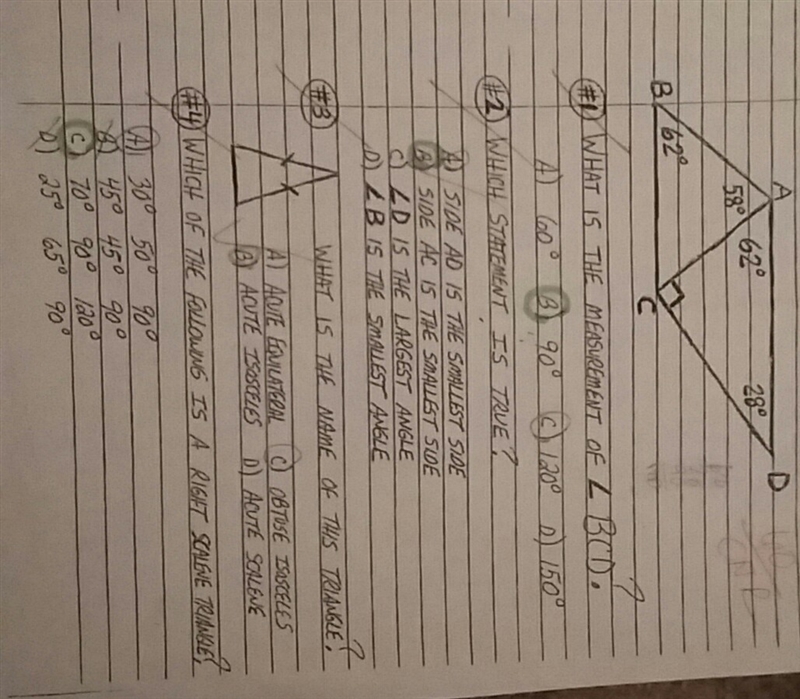 A
58°
62°
28°
D
B
62°
C
#1 WHAT IS THE MEASUREMENT OF ∠ BCD?
A) 60° B) 90° C) 120° D) 150°
#2 WHICH STATEMENT IS TRUE?
A) SIDE AD IS THE SMALLEST SIDE
B) SIDE AC IS THE SMALLEST SIDE
C) ∠D IS THE LARGEST ANGLE
D) ∠B IS THE SMALLEST ANGLE
#3 WHAT IS THE NAME OF THIS TRIANGLE?
A) ACUTE EQUILATERAL C) OBTUSE ISOSCELES
B) ACUTE ISOSCELES D) ACUTE SCALENE
#4 WHICH OF THE FOLLOWING IS A RIGHT SCALENE TRIANGLE?
A) 30° 50° 90°
B) 45° 45° 90°
C) 70° 90° 120°
D) 25° 65° 90°